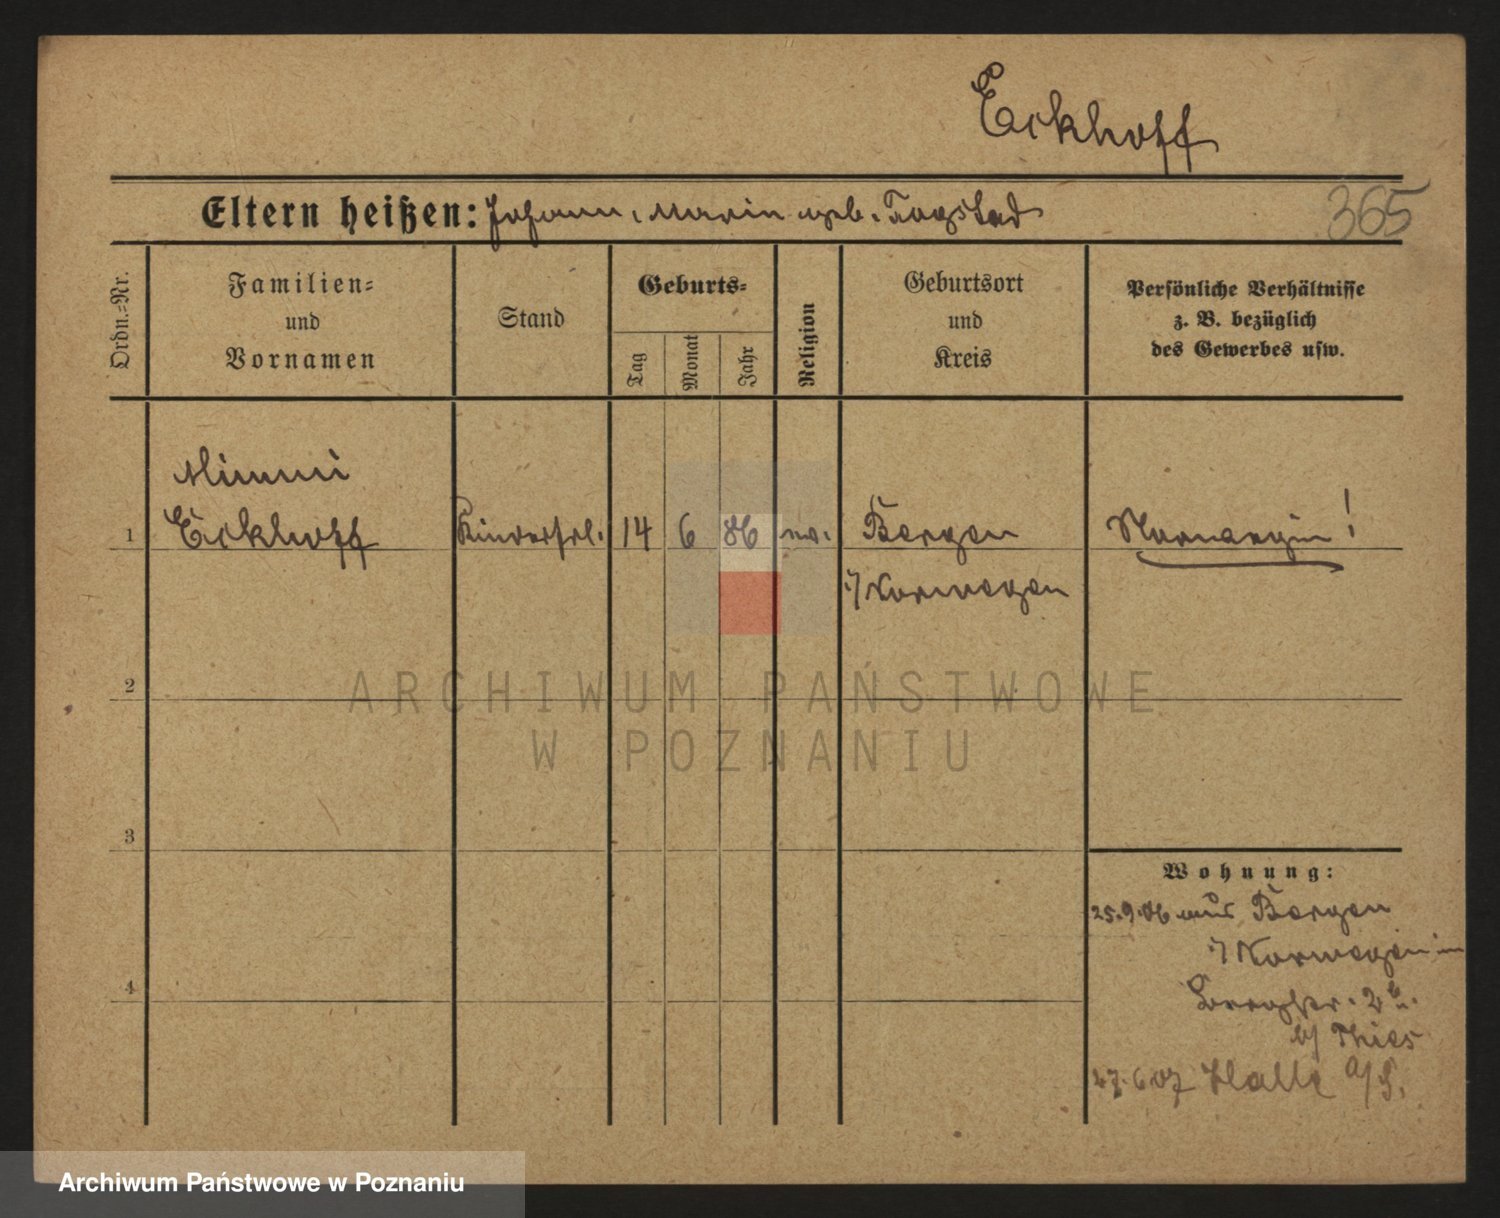 Eckhoff
Eltern heißen: Johann, Marie geb. Togstad
365
Ordn.=Nr.
Familien=
und
Vornamen
Stand
Geburts=
Tag
Monat
Jahr
Religion
Geburtsort
und
Kreis
Persönliche Verhältnisse
z. B. bezüglich
des Gewerbes usw.
Mimmi
1 Eckhoff Kinderfrl. 14 6 86 ev. Bergen Norwegerin!
i/Norwegen
2
ARCHIWUM PAŃSTWOWE
W POZNANIU
3
Wohnung:
25.9.06 aus Bergen
i/Norwegen in
2
b/ Thies
27.6.07 Halle a/S.
4
Archiwum Państwowe w Poznaniu